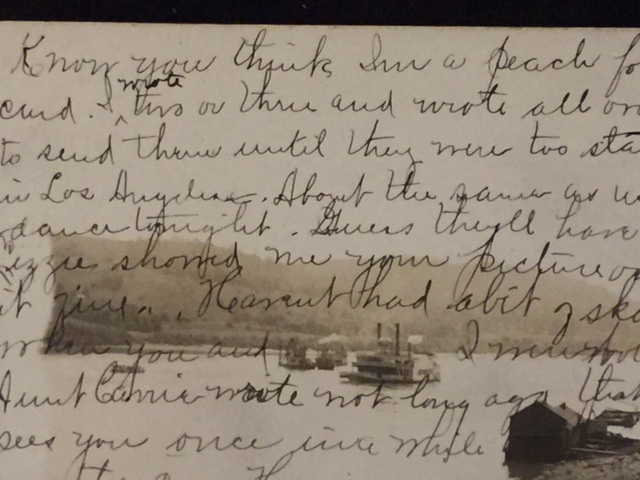 Know you think Im a peach fo
card. I wrote two or three and wrote all
to send them until they were too sta
in Los Angeles. About the same as
dance tonight. Guess they'll have
izzie showed me your picture
it fine. Havent had a bit of ska
when you and I
Aunt Carrie wrote not long ago. that
sees you once in a while